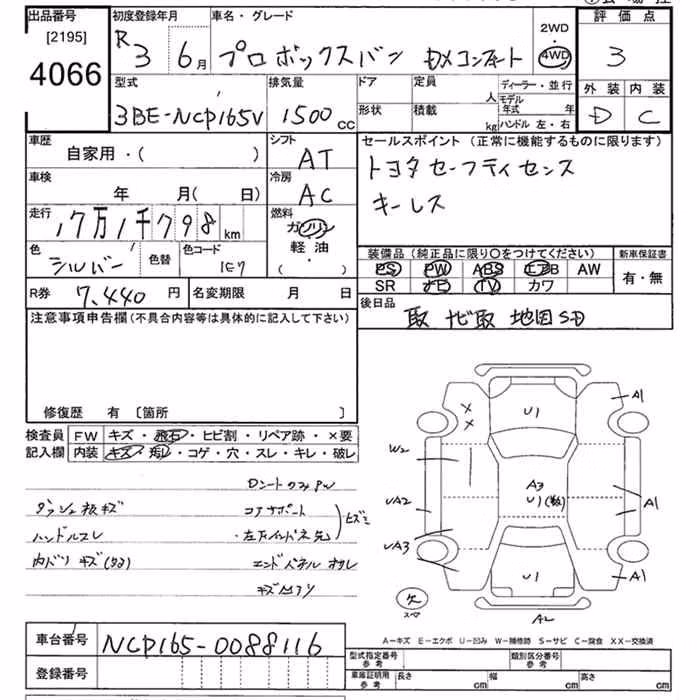 出品番号 初度登録年月 車名・グレード 評価点
[2195]
4066
R3 6月 プロボックスバン DXコンフォート 2WD 4WD 3
型式 排気量 ドア 定員 人 ディーラー・並行 外装 内装
3BE-NCP165V 1500CC 形状 積載 kg モデル年式 年 ハンドル 左・右 D C
車歴 シフト セールスポイント(正常に機能するものに限ります)
自家用・( ) AT トヨタセーフティセンス
車検 冷房 キーレス
年 月(日) AC
走行 17万1千798km 燃料 ガソリン
軽油
・( )
色 シルバー 色替 色コード 1E7
装備品(純正品に限り〇をつけてください) 新車保証書
PS PW ABS エアB AW 有・無
SR ナビ TV カワ
R券 7,440円 名変期限 月 日
後日品
取 ナビ取 地図SD
注意事項申告欄(不具合内容等は具体的に記入して下さい)
修復歴 有 [箇所 ]
検査員 FW キズ・飛石・ヒビ割・リペア跡・×要
記入欄 内装 キズ・汚レ・コゲ・穴・スレ・キレ・破レ
フロントのみPW
ダッシュ板キズ コアサポート
ハンドルスレ ・左フインパネ先
内バリキズ エンドパネル
キズ凹アリ
U1
A1
W2
A3
U1
UA2
A1
UA3
U1
A1
欠
スペア
A2
A-キズ E-エクボ U-凹み W-補修跡 S-サビ C-腐食 XX-交換済
車台番号 NCP165-0088116
登録番号
型式指定番号 参考 類別区分番号 参考
車庫証明用 参考 長さ cm 幅 cm 高さ cm